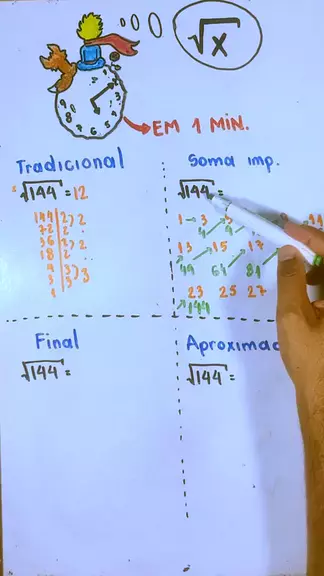 √x
EM 1 MIN.
Tradicional
√144 = 12
144 2 2
72 2
36 2 2
18 2
9 3 3
3 3
1
Soma imp.
√144 =
1 3 5
4 9
13 15 17
49 64 81
23 25 27
144
Final
√144 =
Aproximac
√144 =